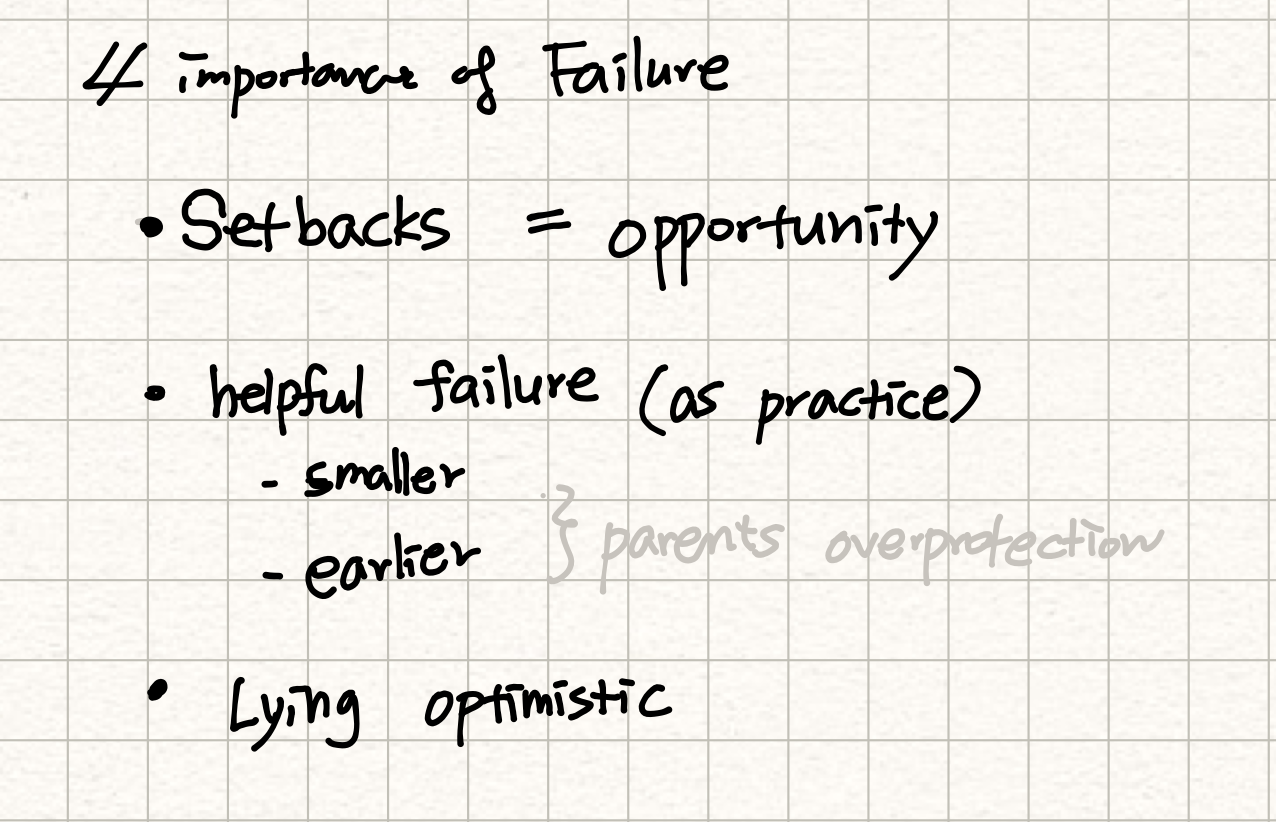 # importance of Failure
• Setbacks = opportunity
• helpful failure (as practice)
- smaller
- earlier
} parents overprotection
• Lying optimistic